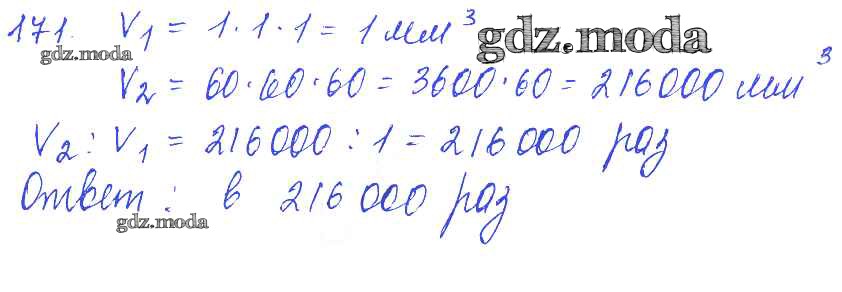 171. V₁ = 1·1·1 = 1 мм³
gdz.moda
gdz.moda
V₂ = 60·60·60 = 3600·60 = 216000 мм³
V₂ : V₁ = 216000 : 1 = 216000 раз
Ответ: в 216000 раз
gdz.moda